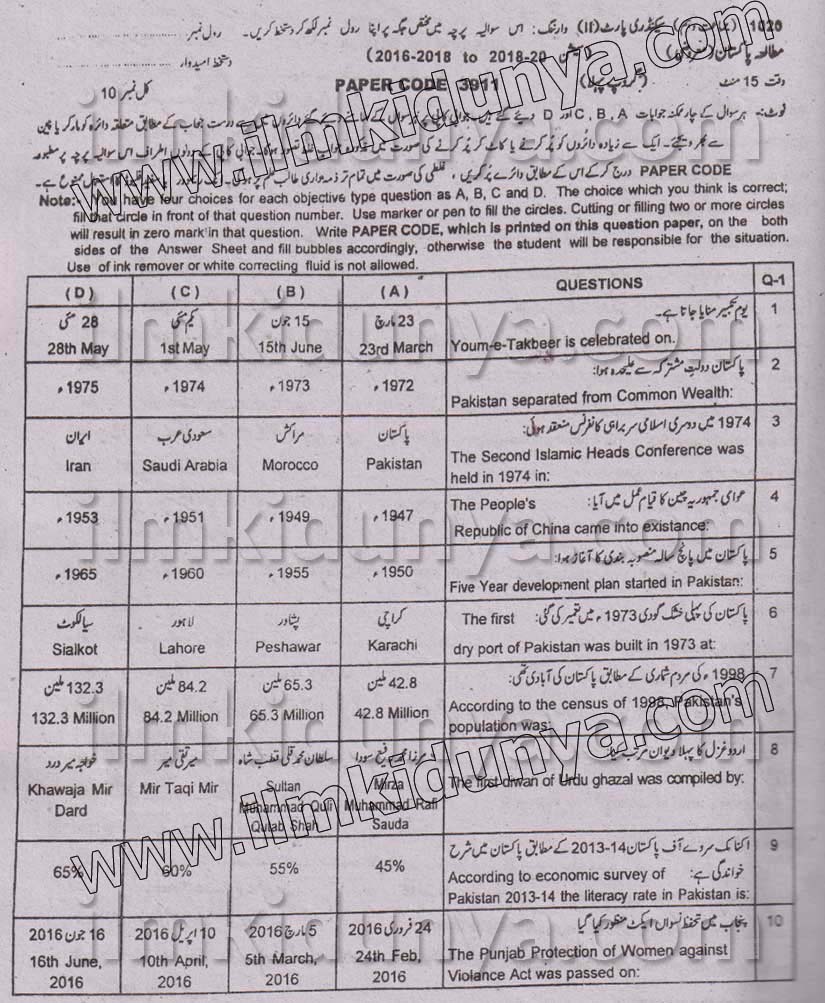 1020 سیکنڈری پارٹ (II) وارننگ: اس سوالیہ پرچہ میں مختص جگہ پر اپنا رول نمبر لکھ کر دستخط کریں۔ رول نمبر
مطالعہ پاکستان (2016-2018 to 2018-20) دستخط امیدوار
وقت 15 منٹ PAPER CODE 3911 کل نمبر 10
PAPER CODE
Note:- You have four choices for each objective type question as A, B, C and D. The choice which you think is correct;
fill that circle in front of that question number. Use marker or pen to fill the circles. Cutting or filling two or more circles
will result in zero mark in that question. Write PAPER CODE, which is printed on this question paper, on the both
sides of the Answer Sheet and fill bubbles accordingly, otherwise the student will be responsible for the situation.
Use of ink remover or white correcting fluid is not allowed.
(D) (C) (B) (A) QUESTIONS Q-1
28 مئی یکم مئی 15 جون 23 مارچ یوم تکبیر منایا جاتا ہے۔ 1
28th May 1st May 15th June 23rd March Youm-e-Takbeer is celebrated on.
1975ء 1974ء 1973ء 1972ء پاکستان دولت مشترکہ سے علیحدہ ہوا: 2
Pakistan separated from Common Wealth:
ایران سعودی عرب مراکش پاکستان 1974 میں دوسری اسلامی سربراہی کانفرنس منعقد ہوئی: 3
Iran Saudi Arabia Morocco Pakistan The Second Islamic Heads Conference was
held in 1974 in:
1953ء 1951ء 1949ء 1947ء The People's عوامی جمہوریہ چین کا قیام عمل میں آیا: 4
Republic of China came into existance:
1965ء 1960ء 1955ء 1950ء پاکستان میں پانچ سالہ منصوبہ بندی کا آغاز ہوا: 5
Five Year development plan started in Pakistan:
سیالکوٹ لاہور پشاور کراچی The first پاکستان کی پہلی خشک گودی 1973ء میں تعمیر کی گئی: 6
Sialkot Lahore Peshawar Karachi dry port of Pakistan was built in 1973 at:
132.3 ملین 84.2 ملین 65.3 ملین 42.8 ملین 1998ء کی مردم شماری کے مطابق پاکستان کی آبادی تھی: 7
132.3 Million 84.2 Million 65.3 Million 42.8 Million According to the census of 1998, Pakistan's
population was:
خواجہ میر درد میر تقی میر سلطان محمد قلی قطب شاہ مرزا محمد رفیع سودا اردو غزل کا پہلا دیوان مرتب کیا: 8
Khawaja Mir Dard Mir Taqi Mir Sultan Muhammad Quli Qutab Shah Mirza Muhammad Rafi Sauda The first diwan of Urdu ghazal was compiled by:
65% 60% 55% 45% اکنامک سروے آف پاکستان 2013-14 کے مطابق پاکستان میں شرح 9
خواندگی ہے:
According to economic survey of
Pakistan 2013-14 the literacy rate in Pakistan is:
16 جون 2016 10 اپریل 2016 5 مارچ 2016 24 فروری 2016 پنجاب میں تحفظ نسواں ایکٹ منظور کیا گیا 10
16th June, 2016 10th April, 2016 5th March, 2016 24th Feb, 2016 The Punjab Protection of Women against
Violance Act was passed on:
www.ilmkidunya.com
www.ilmkidunya.com
ilmkidunya.com
ilmkidunya.com
ilmkidunya.com